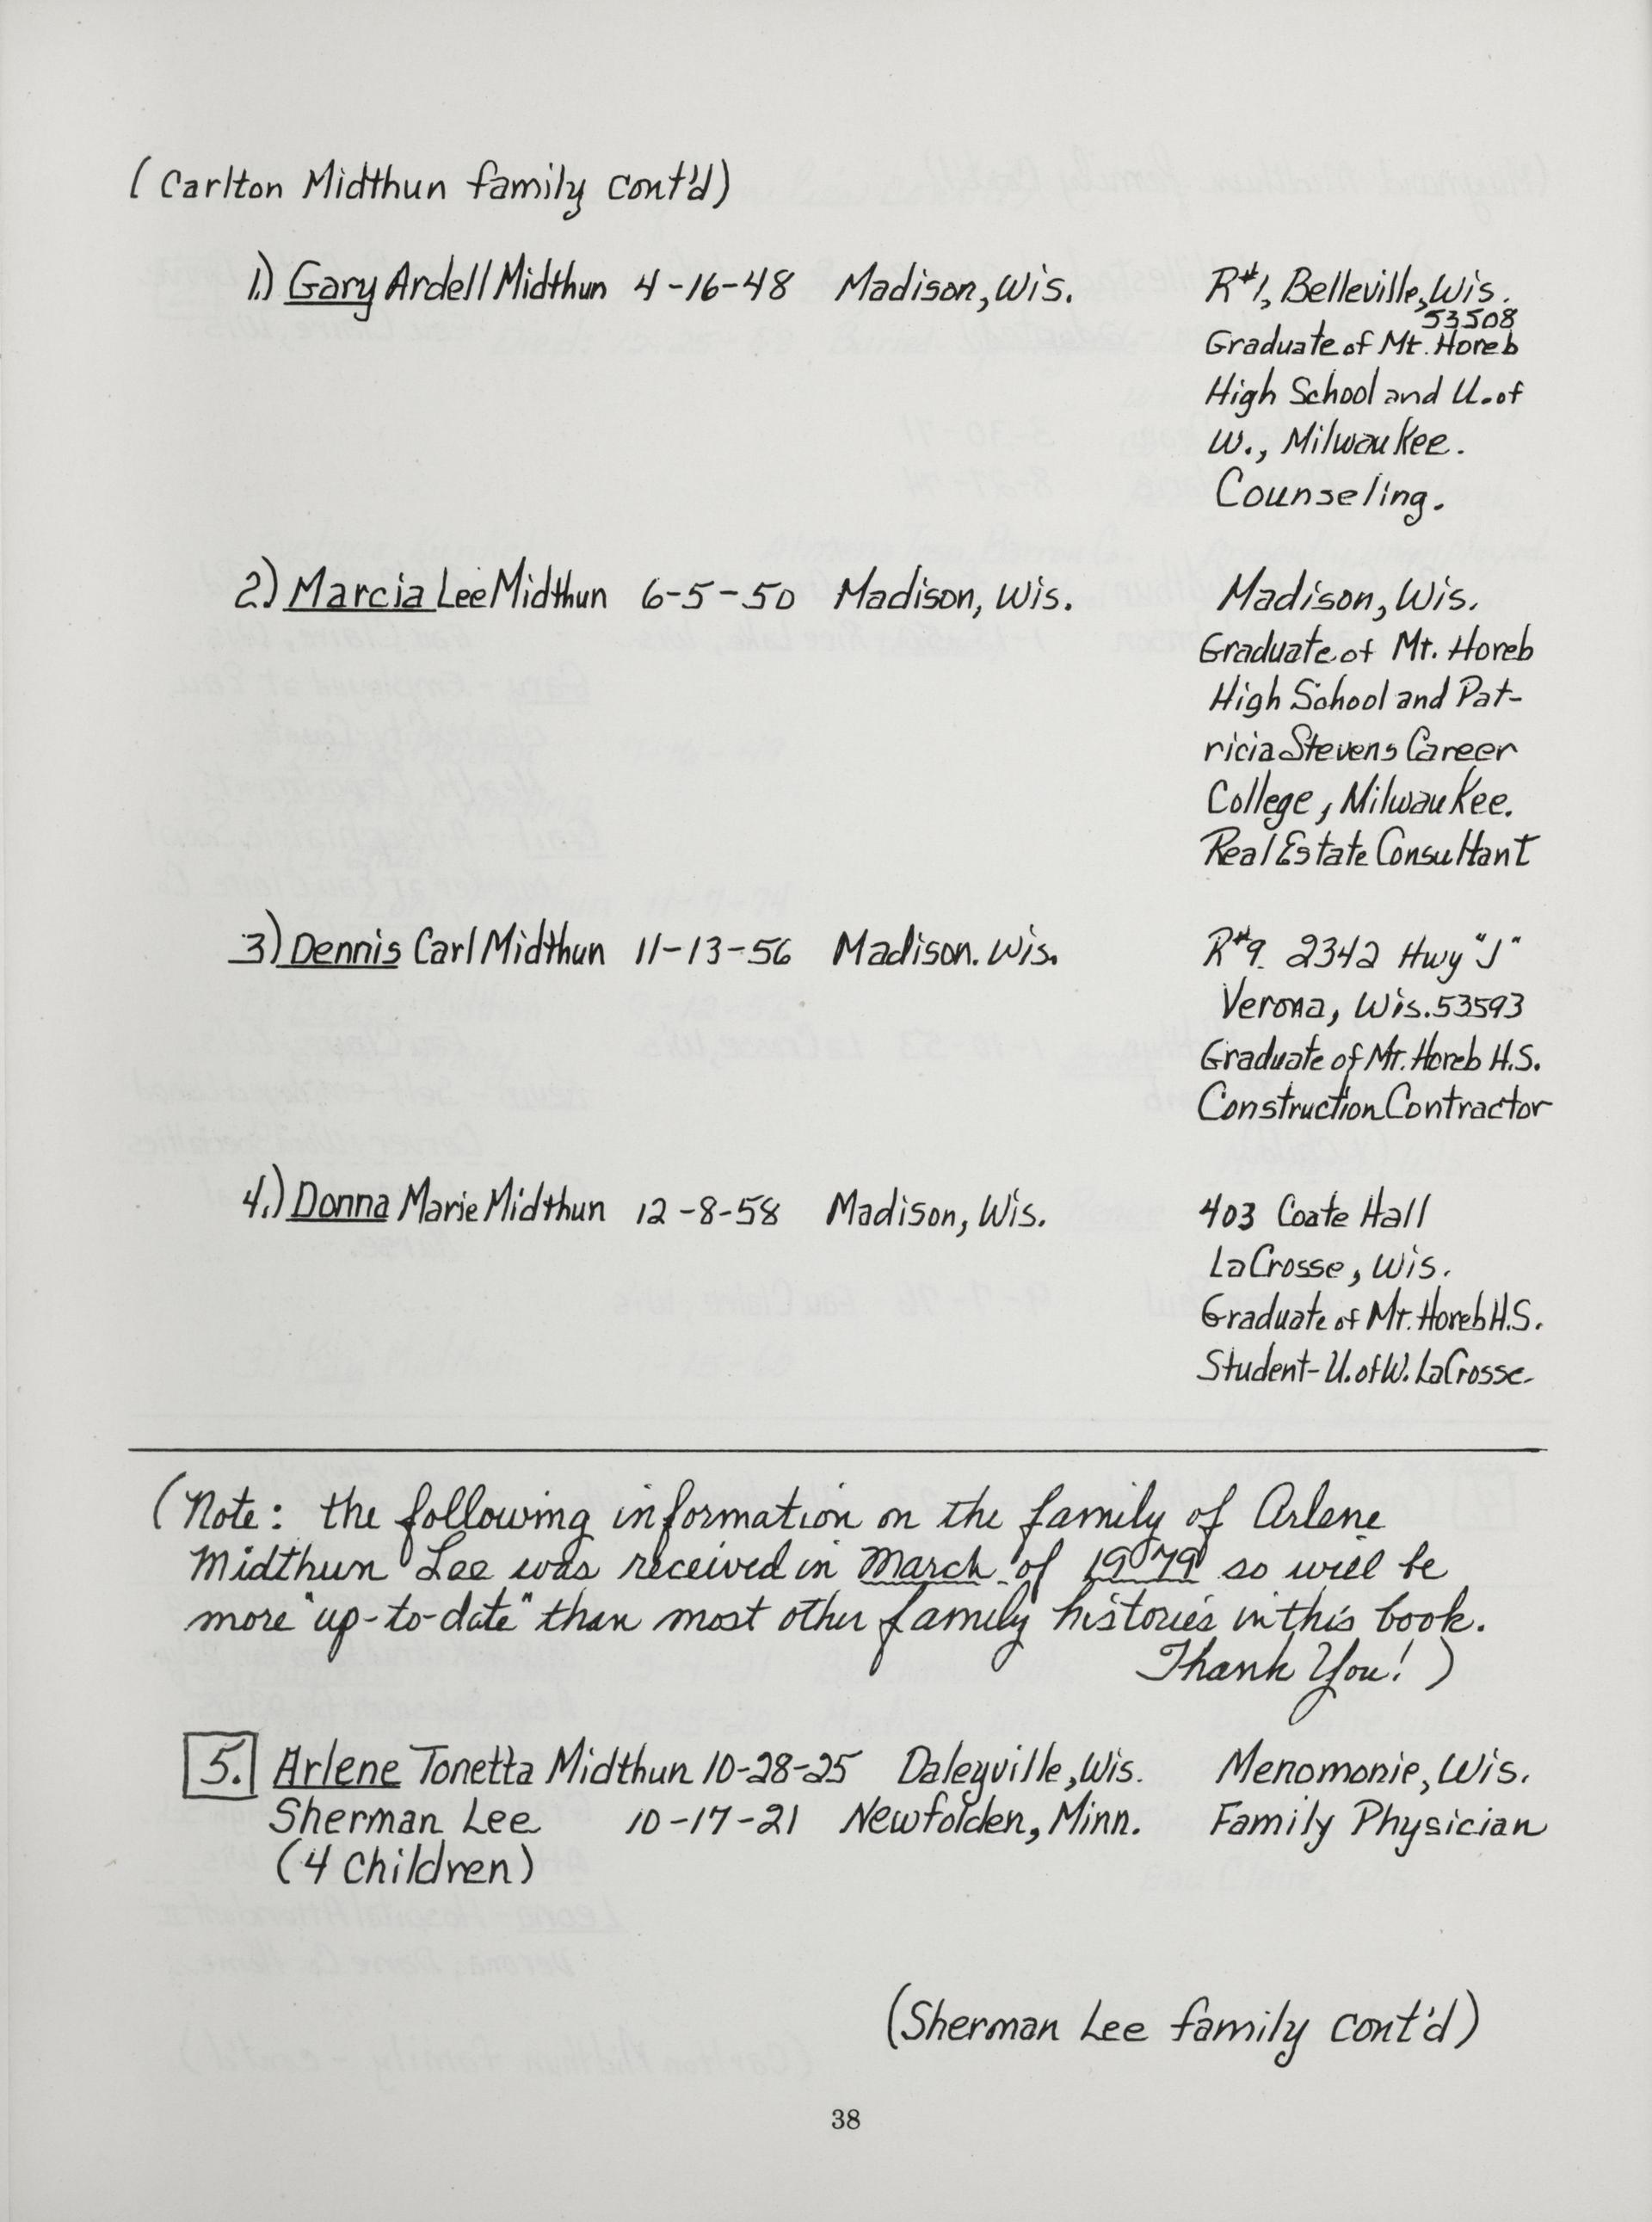 (Carlton Midthun family cont'd)
1.) Gary Ardell Midthun 4-16-48 Madison, Wis. R#1, Belleville, Wis.
53508
Graduate of Mt. Horeb
High School and U. of
W., Milwaukee.
Counseling.
2.) Marcia Lee Midthun 6-5-50 Madison, Wis. Madison, Wis.
Graduate of Mt. Horeb
High School and Pat-
ricia Stevens Career
College, Milwaukee.
Real Estate Consultant
3.) Dennis Carl Midthun 11-13-56 Madison. Wis. R#9. 2342 Hwy "J"
Verona, Wis. 53593
Graduate of Mt. Horeb H.S.
Construction Contractor
4.) Donna Marie Midthun 12-8-58 Madison, Wis. 403 Coate Hall
LaCrosse, Wis.
Graduate of Mt. Horeb H.S.
Student-U. of W. LaCrosse.
(Note: the following information on the family of Arlene
Midthun Lee was received in March of 1979 so will be
more "up-to-date" than most other family histories in this book.
Thank You!)
5. Arlene Tonetta Midthun 10-28-25 Daleyville, Wis. Menomonie, Wis.
Sherman Lee 10-17-21 Newfolden, Minn. Family Physician
(4 children)
(Sherman Lee family cont'd)
38